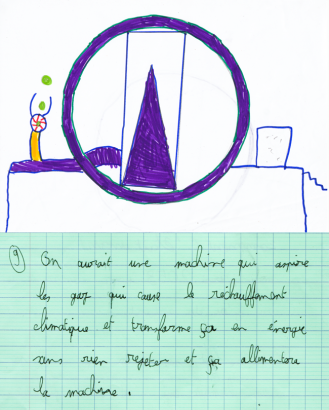 9) On aurait une machine qui aspire
les gaz qui cause le réchauffement
climatique et transforme ça en énergie
sans rien rejeter et ça allimentera
la machine.